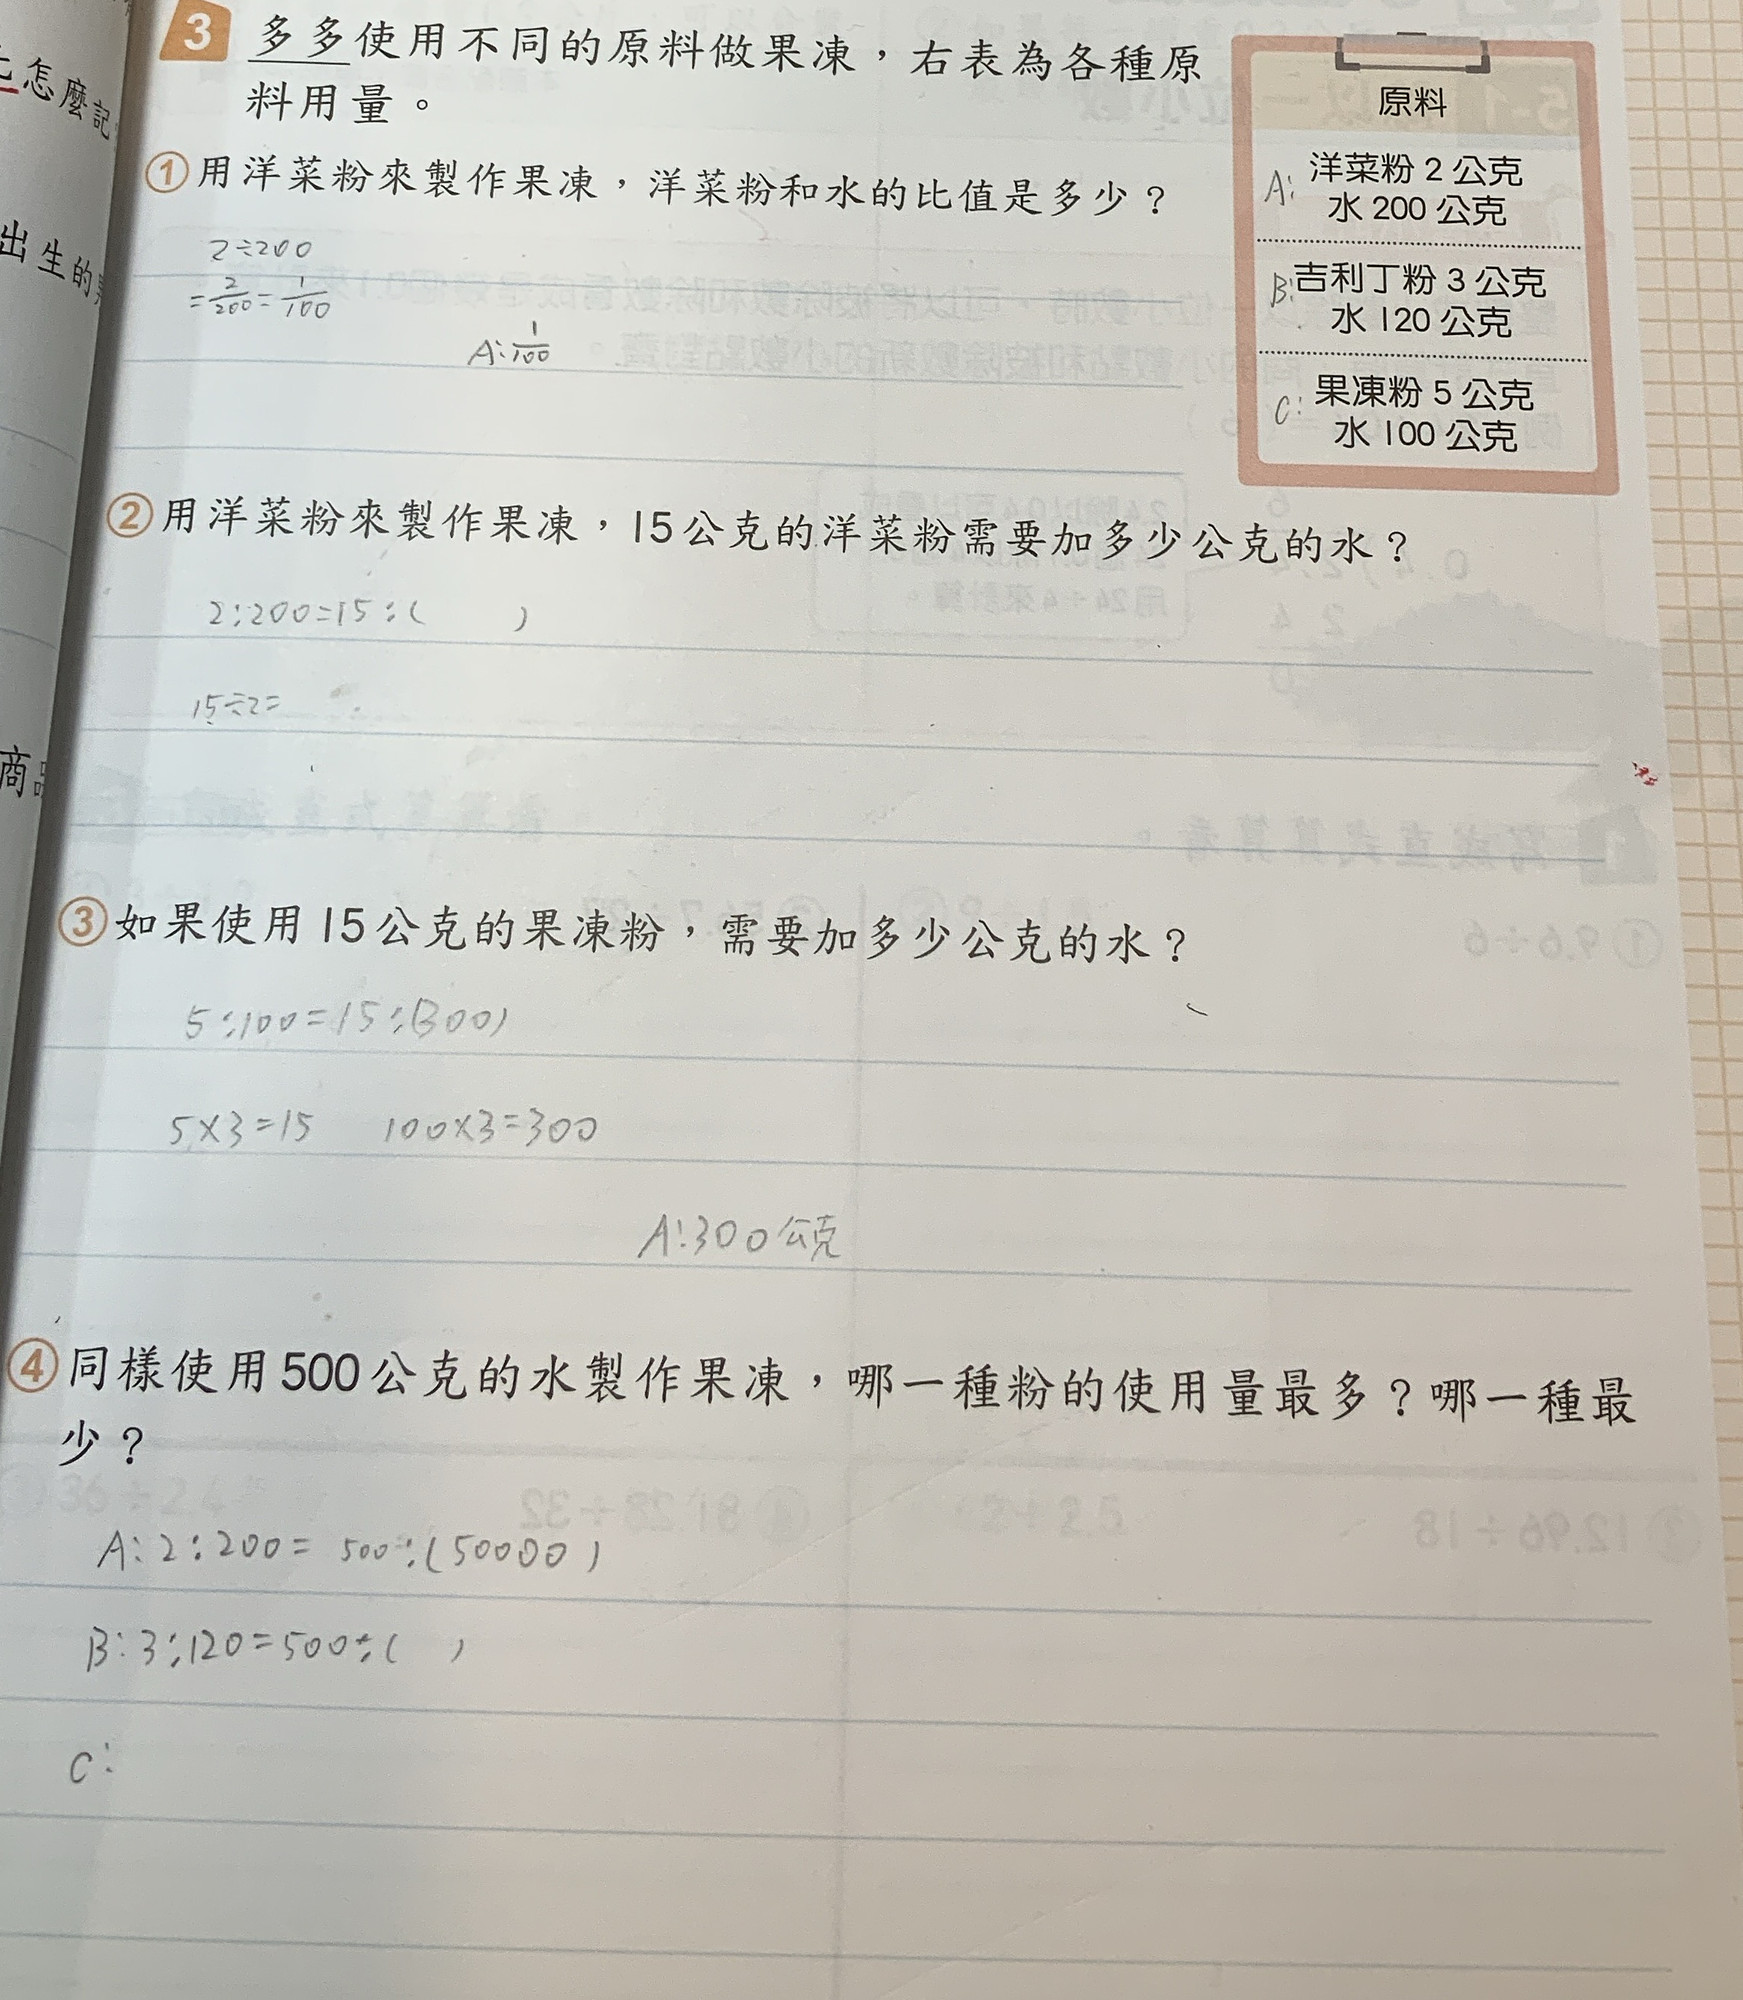 3 多多使用不同的原料做果凍，右表為各種原
料用量。
原料
A: 洋菜粉 2 公克
水 200 公克
B: 吉利丁粉 3 公克
水 120 公克
C: 果凍粉 5 公克
水 100 公克
①用洋菜粉來製作果凍，洋菜粉和水的比值是多少？
2÷200
=2/200=1/100
A:1/100
②用洋菜粉來製作果凍，15公克的洋菜粉需要加多少公克的水？
2:200=15:( )
15÷2=
③如果使用15公克的果凍粉，需要加多少公克的水？
5:100=15:(300)
5×3=15 100×3=300
A:300公克
④同樣使用500公克的水製作果凍，哪一種粉的使用量最多？哪一種最
少？
A:2:200=500÷(50000)
B:3:120=500÷( )
C:
怎麼記
出生的
商品